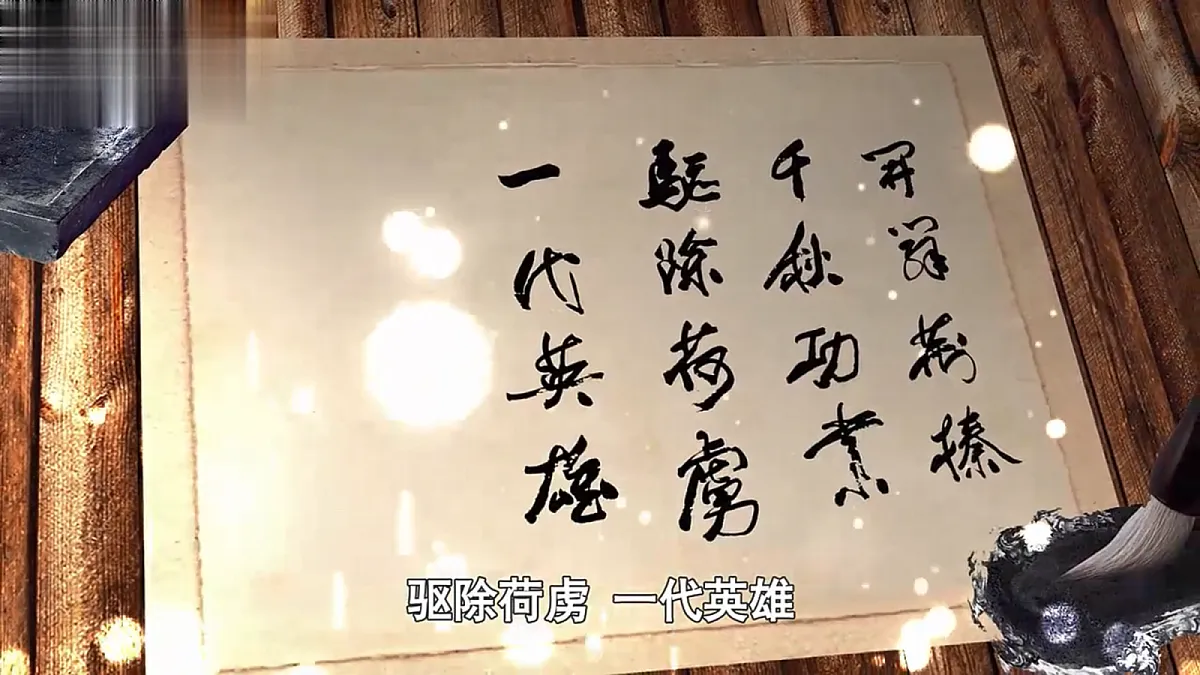 開辟荆榛
千秋功業
驅除荷虜
一代英雄
驱除荷虏 一代英雄